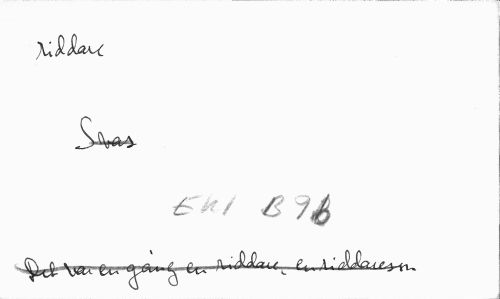 riddare
Svas
EKI B 96
Det var en gång en riddare, en riddareson